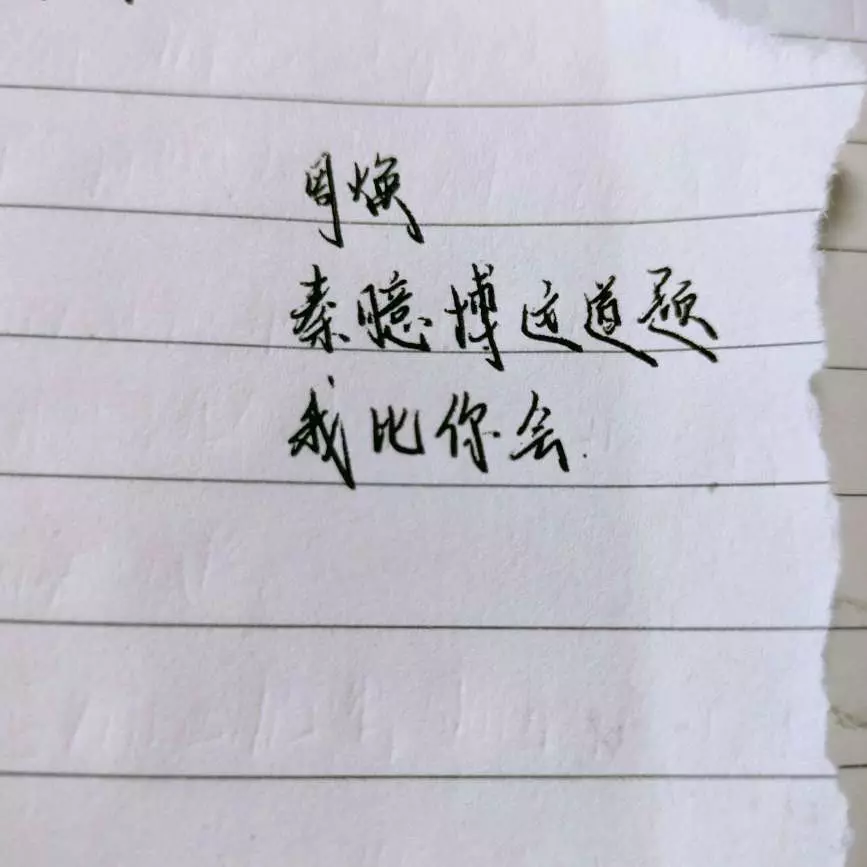 周焕
秦臆博这道题
我比你会.